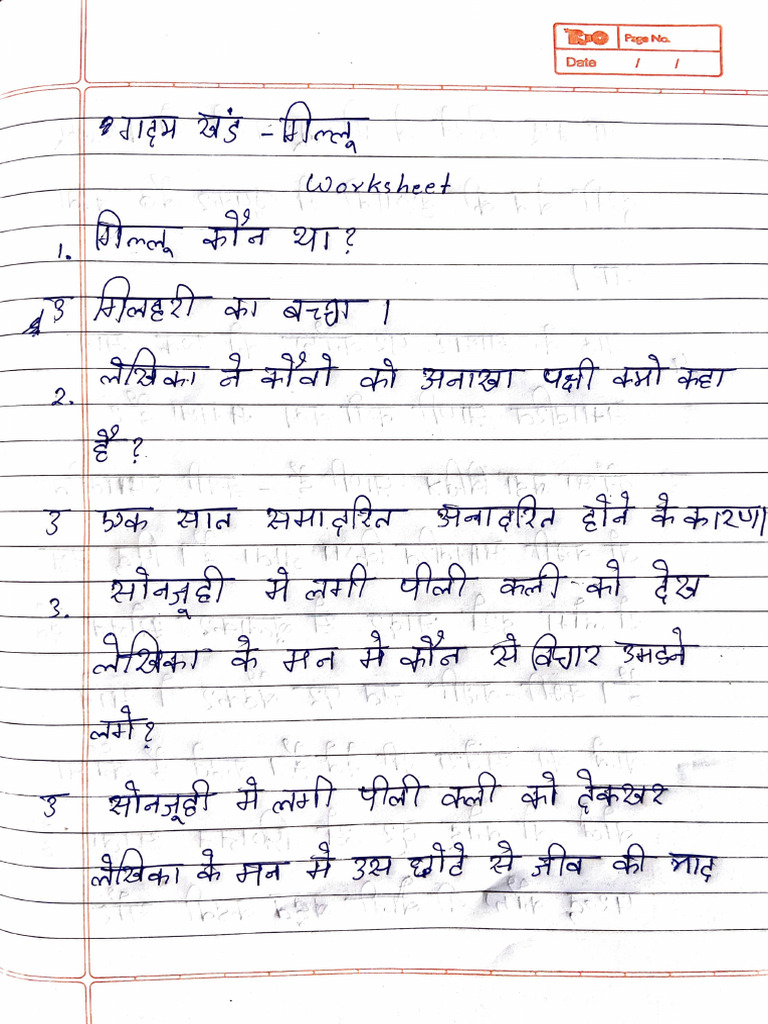 Page No.
Date / /
गदय खंड - गिल्लू
Worksheet
1. गिल्लू कौन था?
उ गिलहरी का बच्चा।
2. लेखिका ने कौवो को अनाखा पक्षी क्यो कहा
है?
उ एक सात समादरित अनादरित होने के कारण।
3. सोनजूही मे लगी पीली कली को देख
लेखिका के मन मे कौन से विचार उमडने
लगे?
उ सोनजूही मे लगी पीली कली को देकखर
लेखिका के मन मे उस छोटे से जीव की याद